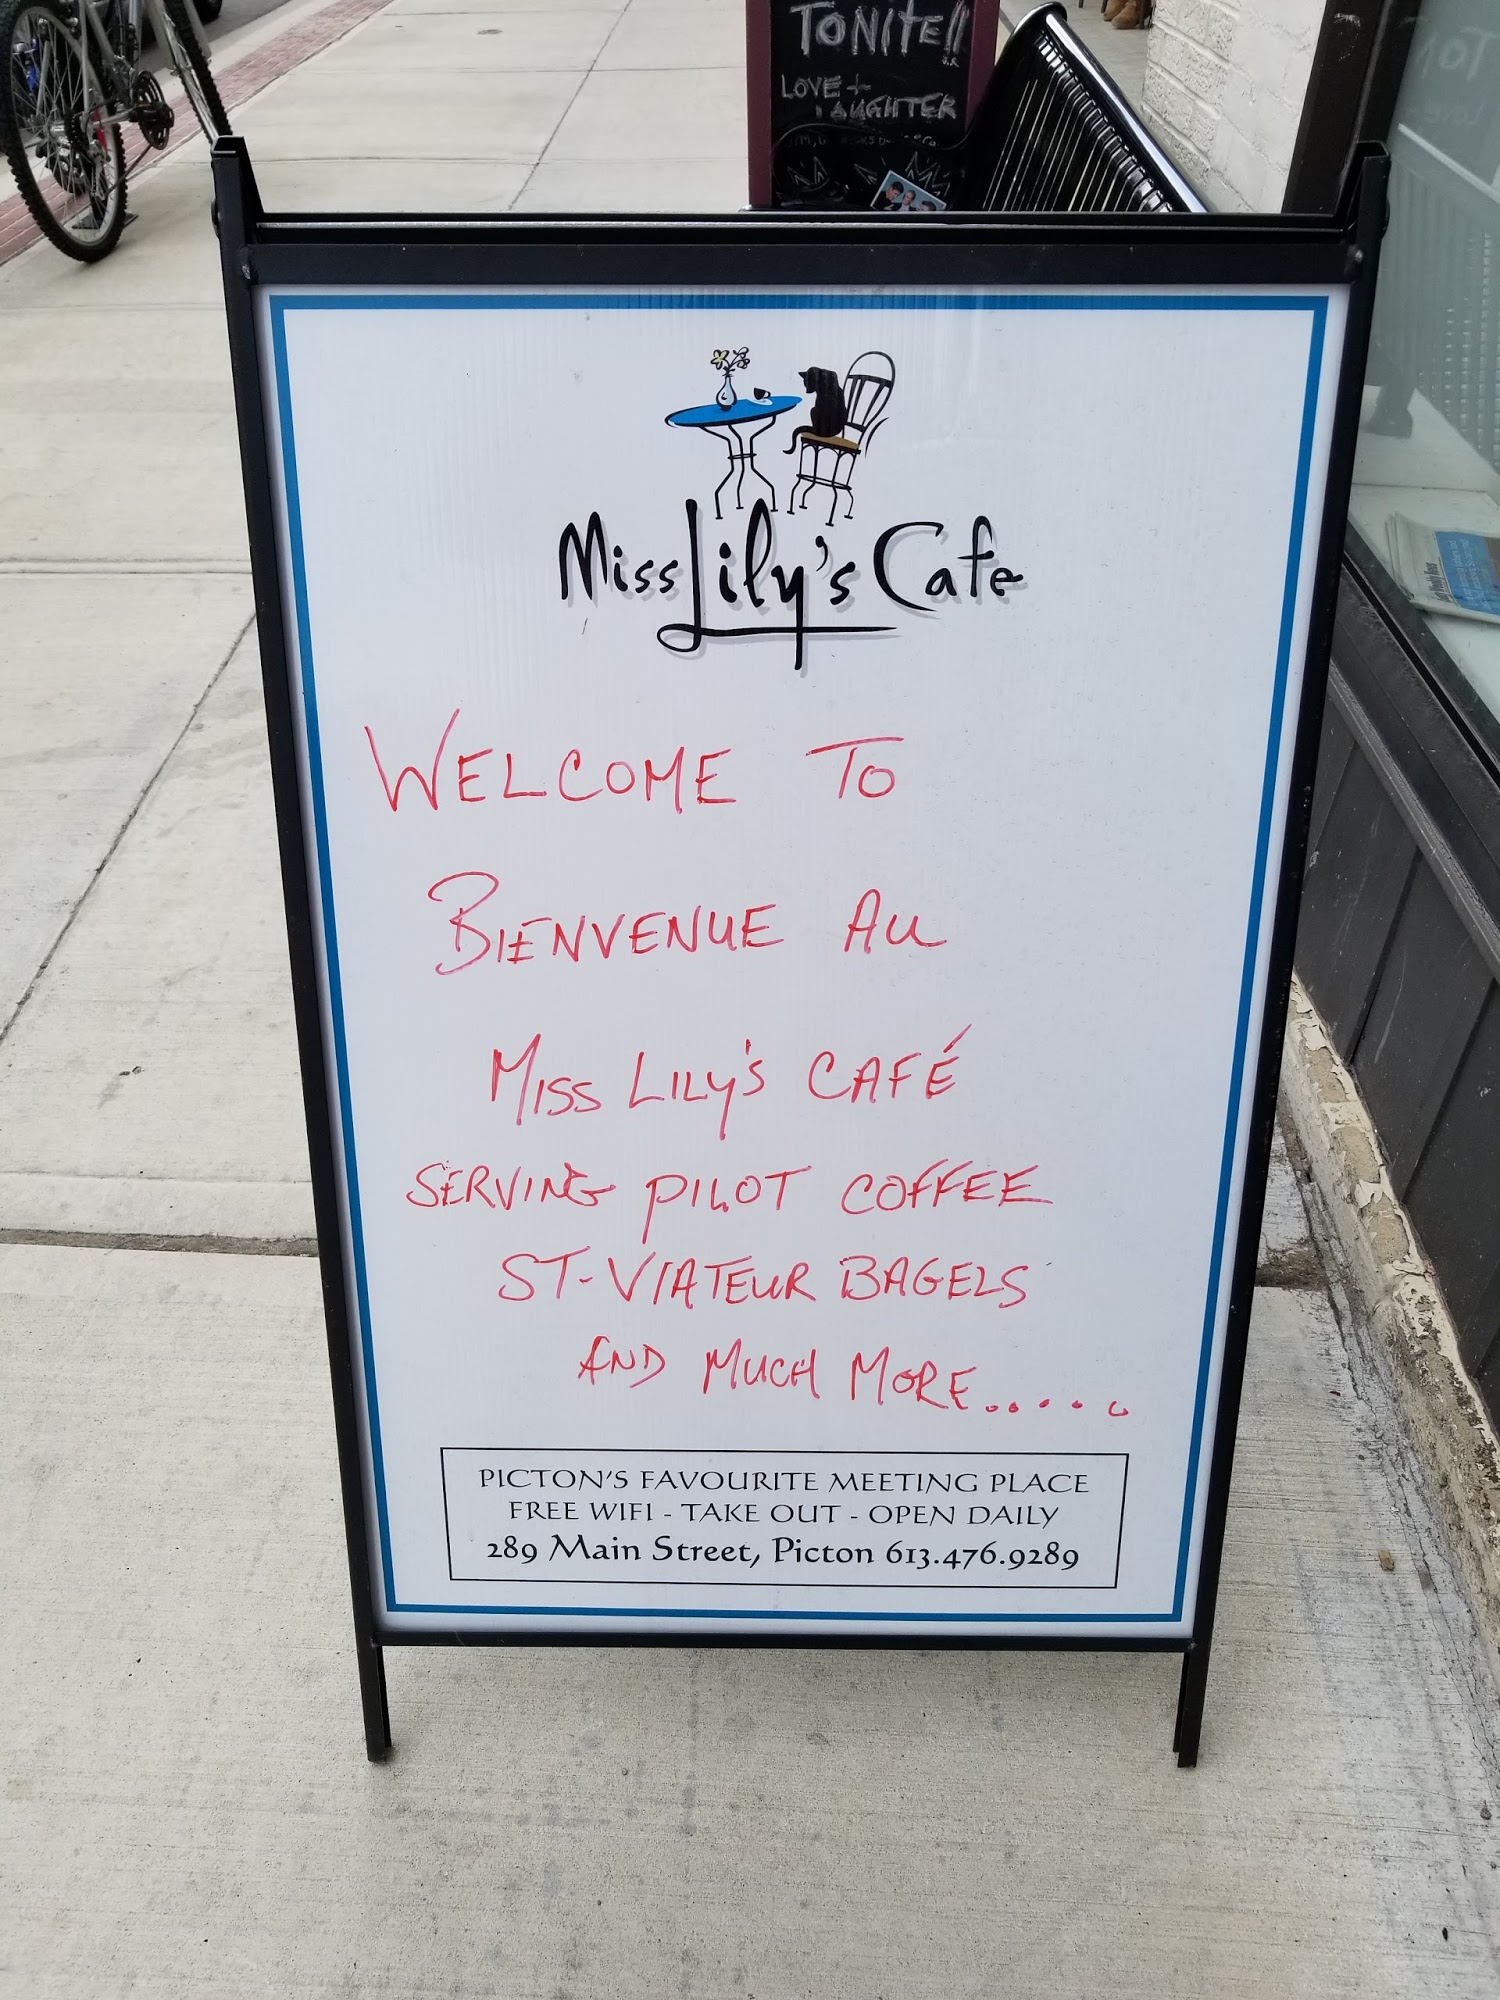 TONITE!!
LOVE +
LAUGHTER
Miss Lily's Cafe
WELCOME TO
BIENVENUE AU
MISS LILY'S CAFÉ
SERVING PILOT COFFEE
ST-VIATEUR BAGELS
AND MUCH MORE......
PICTON'S FAVOURITE MEETING PLACE
FREE WIFI - TAKE OUT - OPEN DAILY
289 Main Street, Picton 613.476.9289